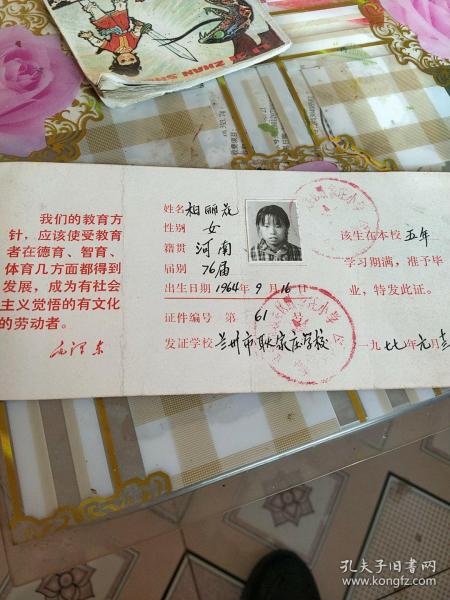 ZHAN SH
我们的教育方
针，应该使受教育
者在德育、智育、
体育几方面都得到
发展，成为有社会
主义觉悟的有文化
的劳动者。
毛泽东
姓名 相丽花
性别 女
籍贯 河南
届别 76届
出生日期 1964年9月16日
证件编号 第 61
发证学校 兰州市耿家庄学校
该生在本校五年
学习期满，准予毕
业，特发此证。
一九七七年元月
孔夫子旧书网
www.kongfz.com